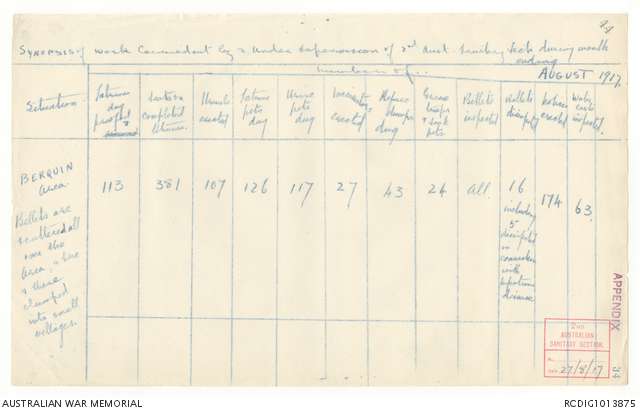 SYNOPSIS of work conducted by & under supervision of 2nd Aust. Sanitary Sect. during month ending
AUGUST 1917.
Number of..
Situation
Latrines
day
completed
Latrines
Urinals
erected
Latrine
pits
dug
Urine
pits
dug
erected
Refuse
dumps
dug
Grease
traps
& soak
pits
Billets
inspected
Billets
disinfected
erected
Water
inspected
BERQUIN
Area.
Billets are
scattered all
over the
area, & here
& there
clumped
into small
villages.
113
381
107
126
117
27
43
24
All.
16
including
5
disinfected
in
connection
with
infectious
disease
174
63.
APPENDIX
34
2ND
AUSTRALIAN
SANITARY SECTION.
27/8/17
AUSTRALIAN WAR MEMORIAL
RCDIG1013875